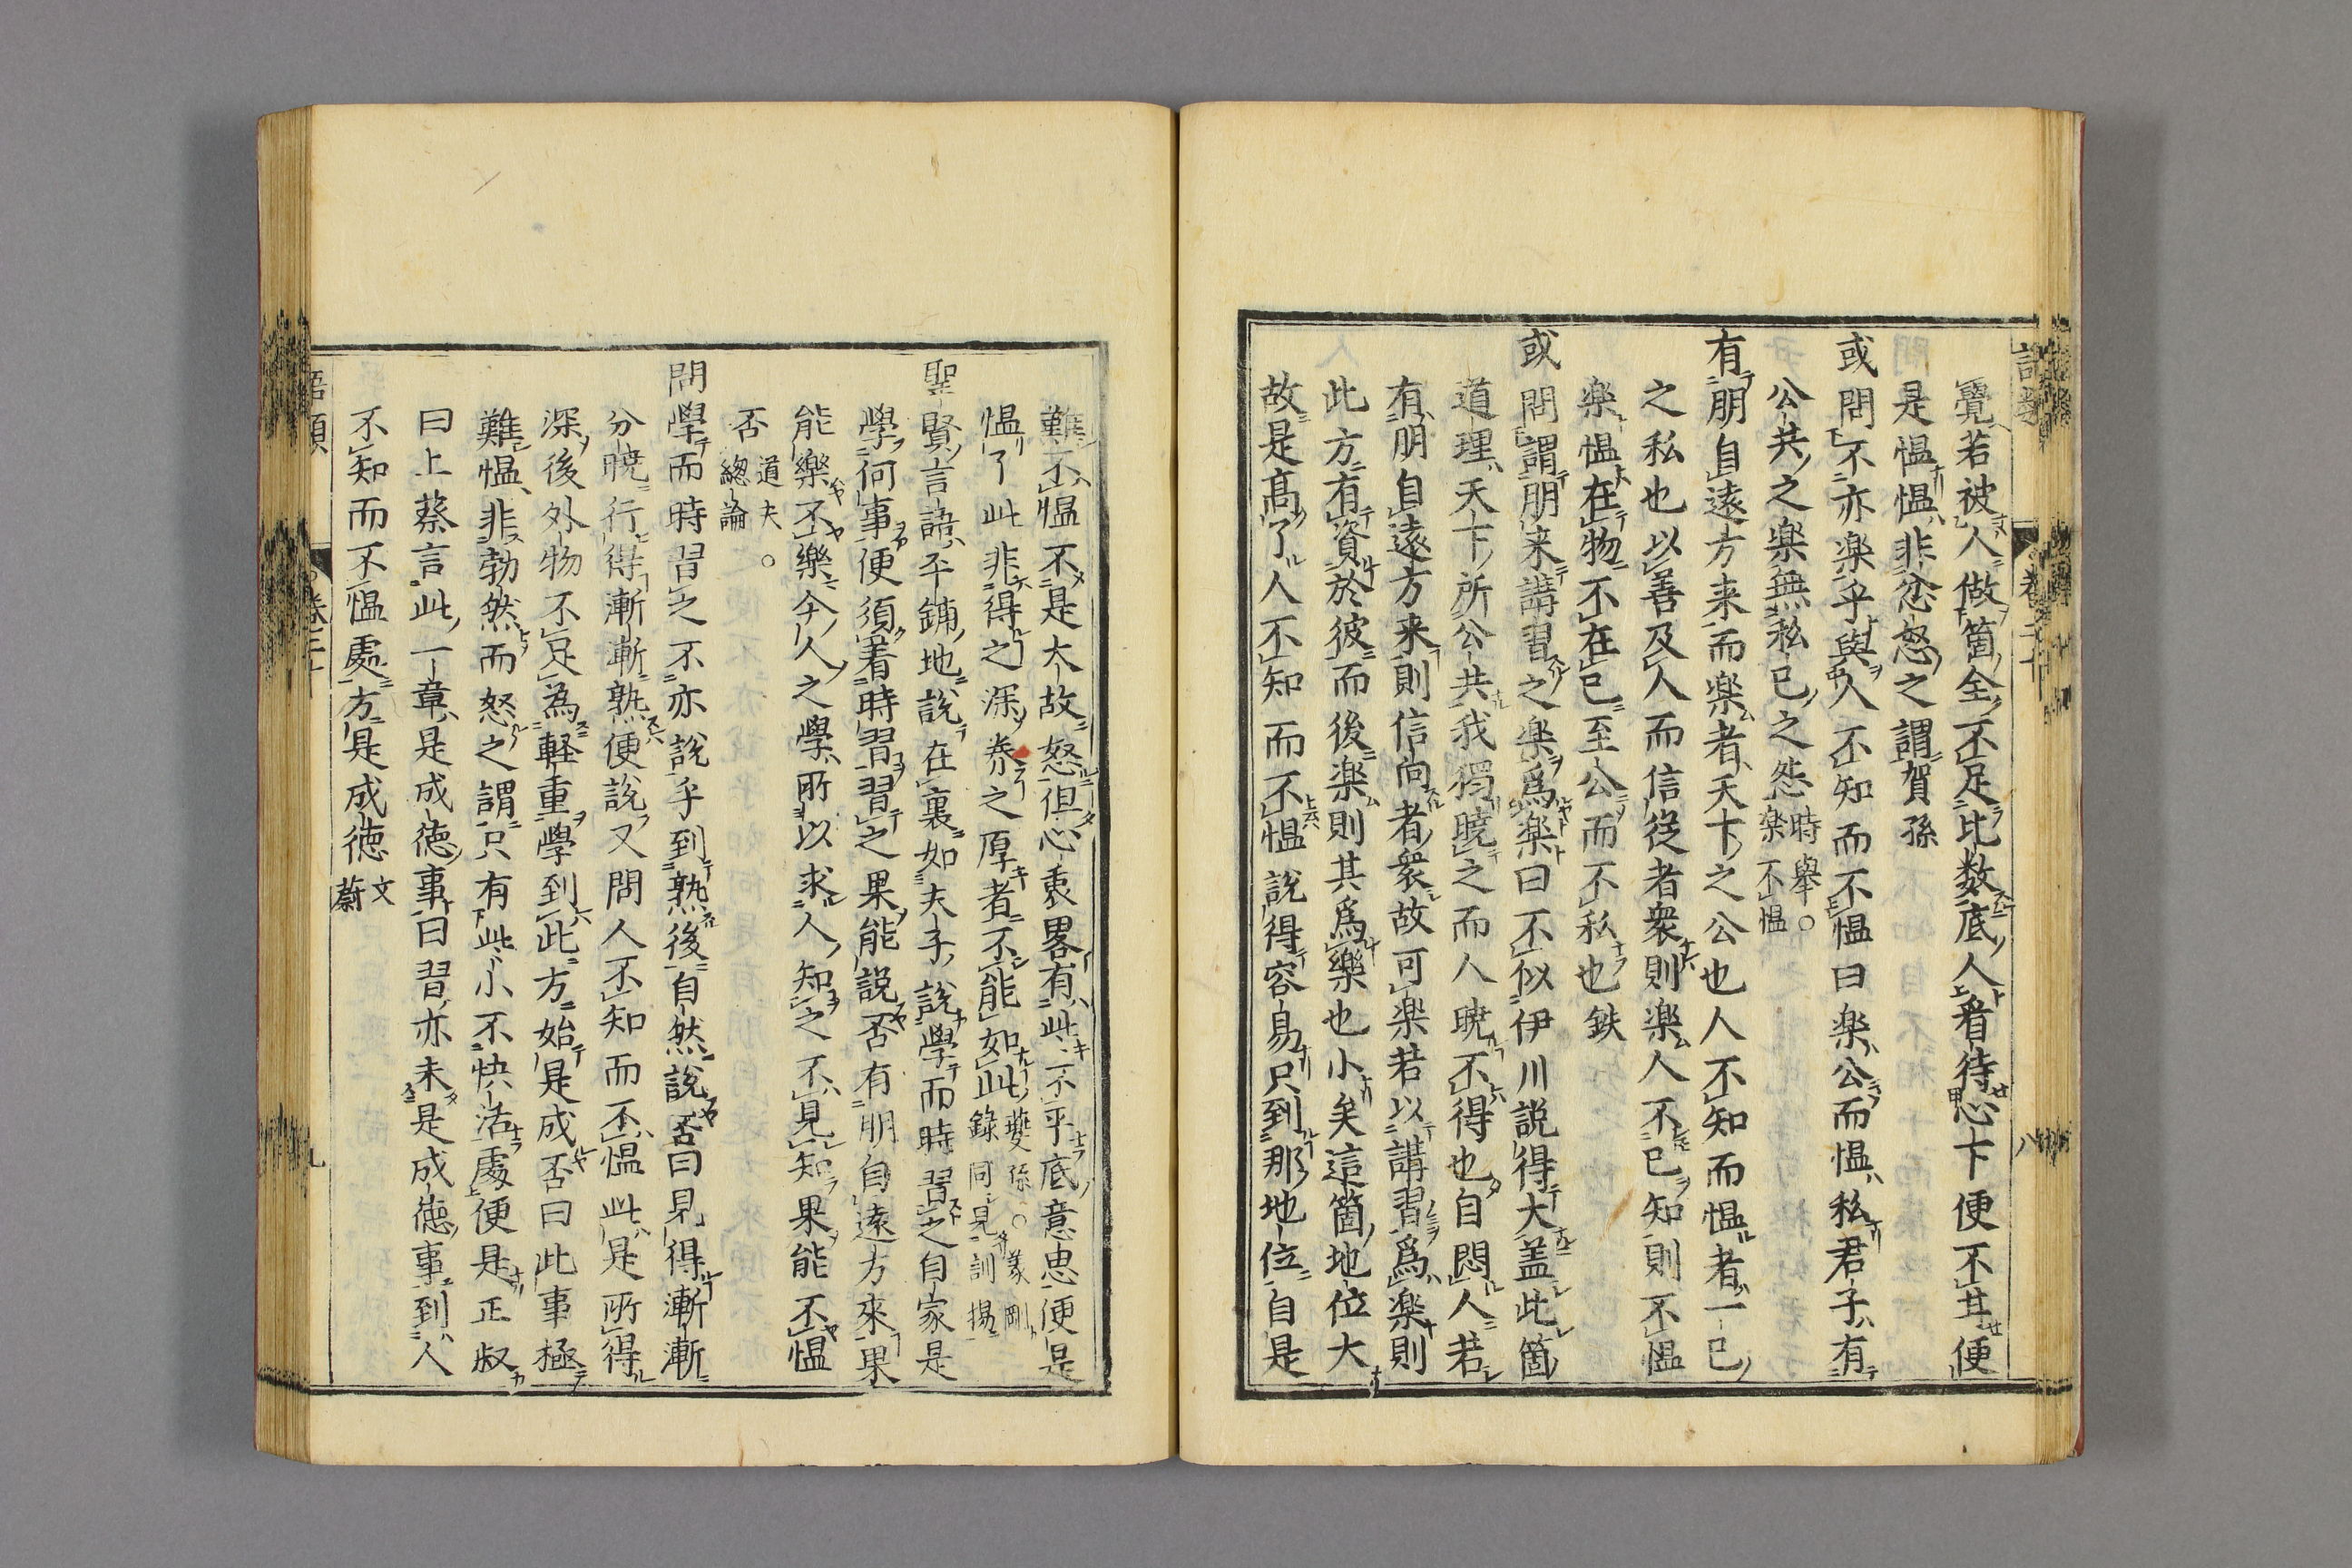 覺若被人做箇全不足比数底人看待心下便不甘便
是愠愠非忿怒之謂賀孫
或問不亦楽乎與人不知而不愠曰楽公而愠私君子有
公共之楽無私己之怨時舉○楽不愠
有朋自遠方来而楽者天下之公也人不知而愠者一己
之私也以善及人而信從者衆則楽人不己知則不愠
楽愠在物不在己至公而不私也銖
或問謂朋来講習之楽爲楽曰不似伊川説得大盖此箇
道理天下所公共我獨暁之而人暁不得也自悶人若
有朋自遠方来則信向者衆故可楽若以講習爲楽則
此方有資於彼而後楽則其爲樂也小矣這箇地位大
故是髙了人不知而不愠說得容易只到那地位自是
卷二十
八
難不愠不是大故怒但心裏畧有此不平底意思便是
愠了此非得之深養之厚者不能如此夔孫○義剛錄同見訓揚
聖賢言語平鋪地說在裏如夫子說學而時習之自家是
學何事便須着時習習之果能説否有朋自遠方來果
能樂不樂今人之學所以求人知之不見知果能不愠
否道夫○總論
問學而時習之不亦說乎到熟後自然說否曰見得漸漸
分曉行得漸漸熟便說又問人不知而不愠此是所得
深後外物不足為軽重學到此方始是成否曰此事極
難愠非勃然而怒之謂只有此小不快活處便是正叔
曰上蔡言此一章是成德事曰習亦未是成德事到人
不知而不愠處方是成徳文蔚
語類
卷二十
九